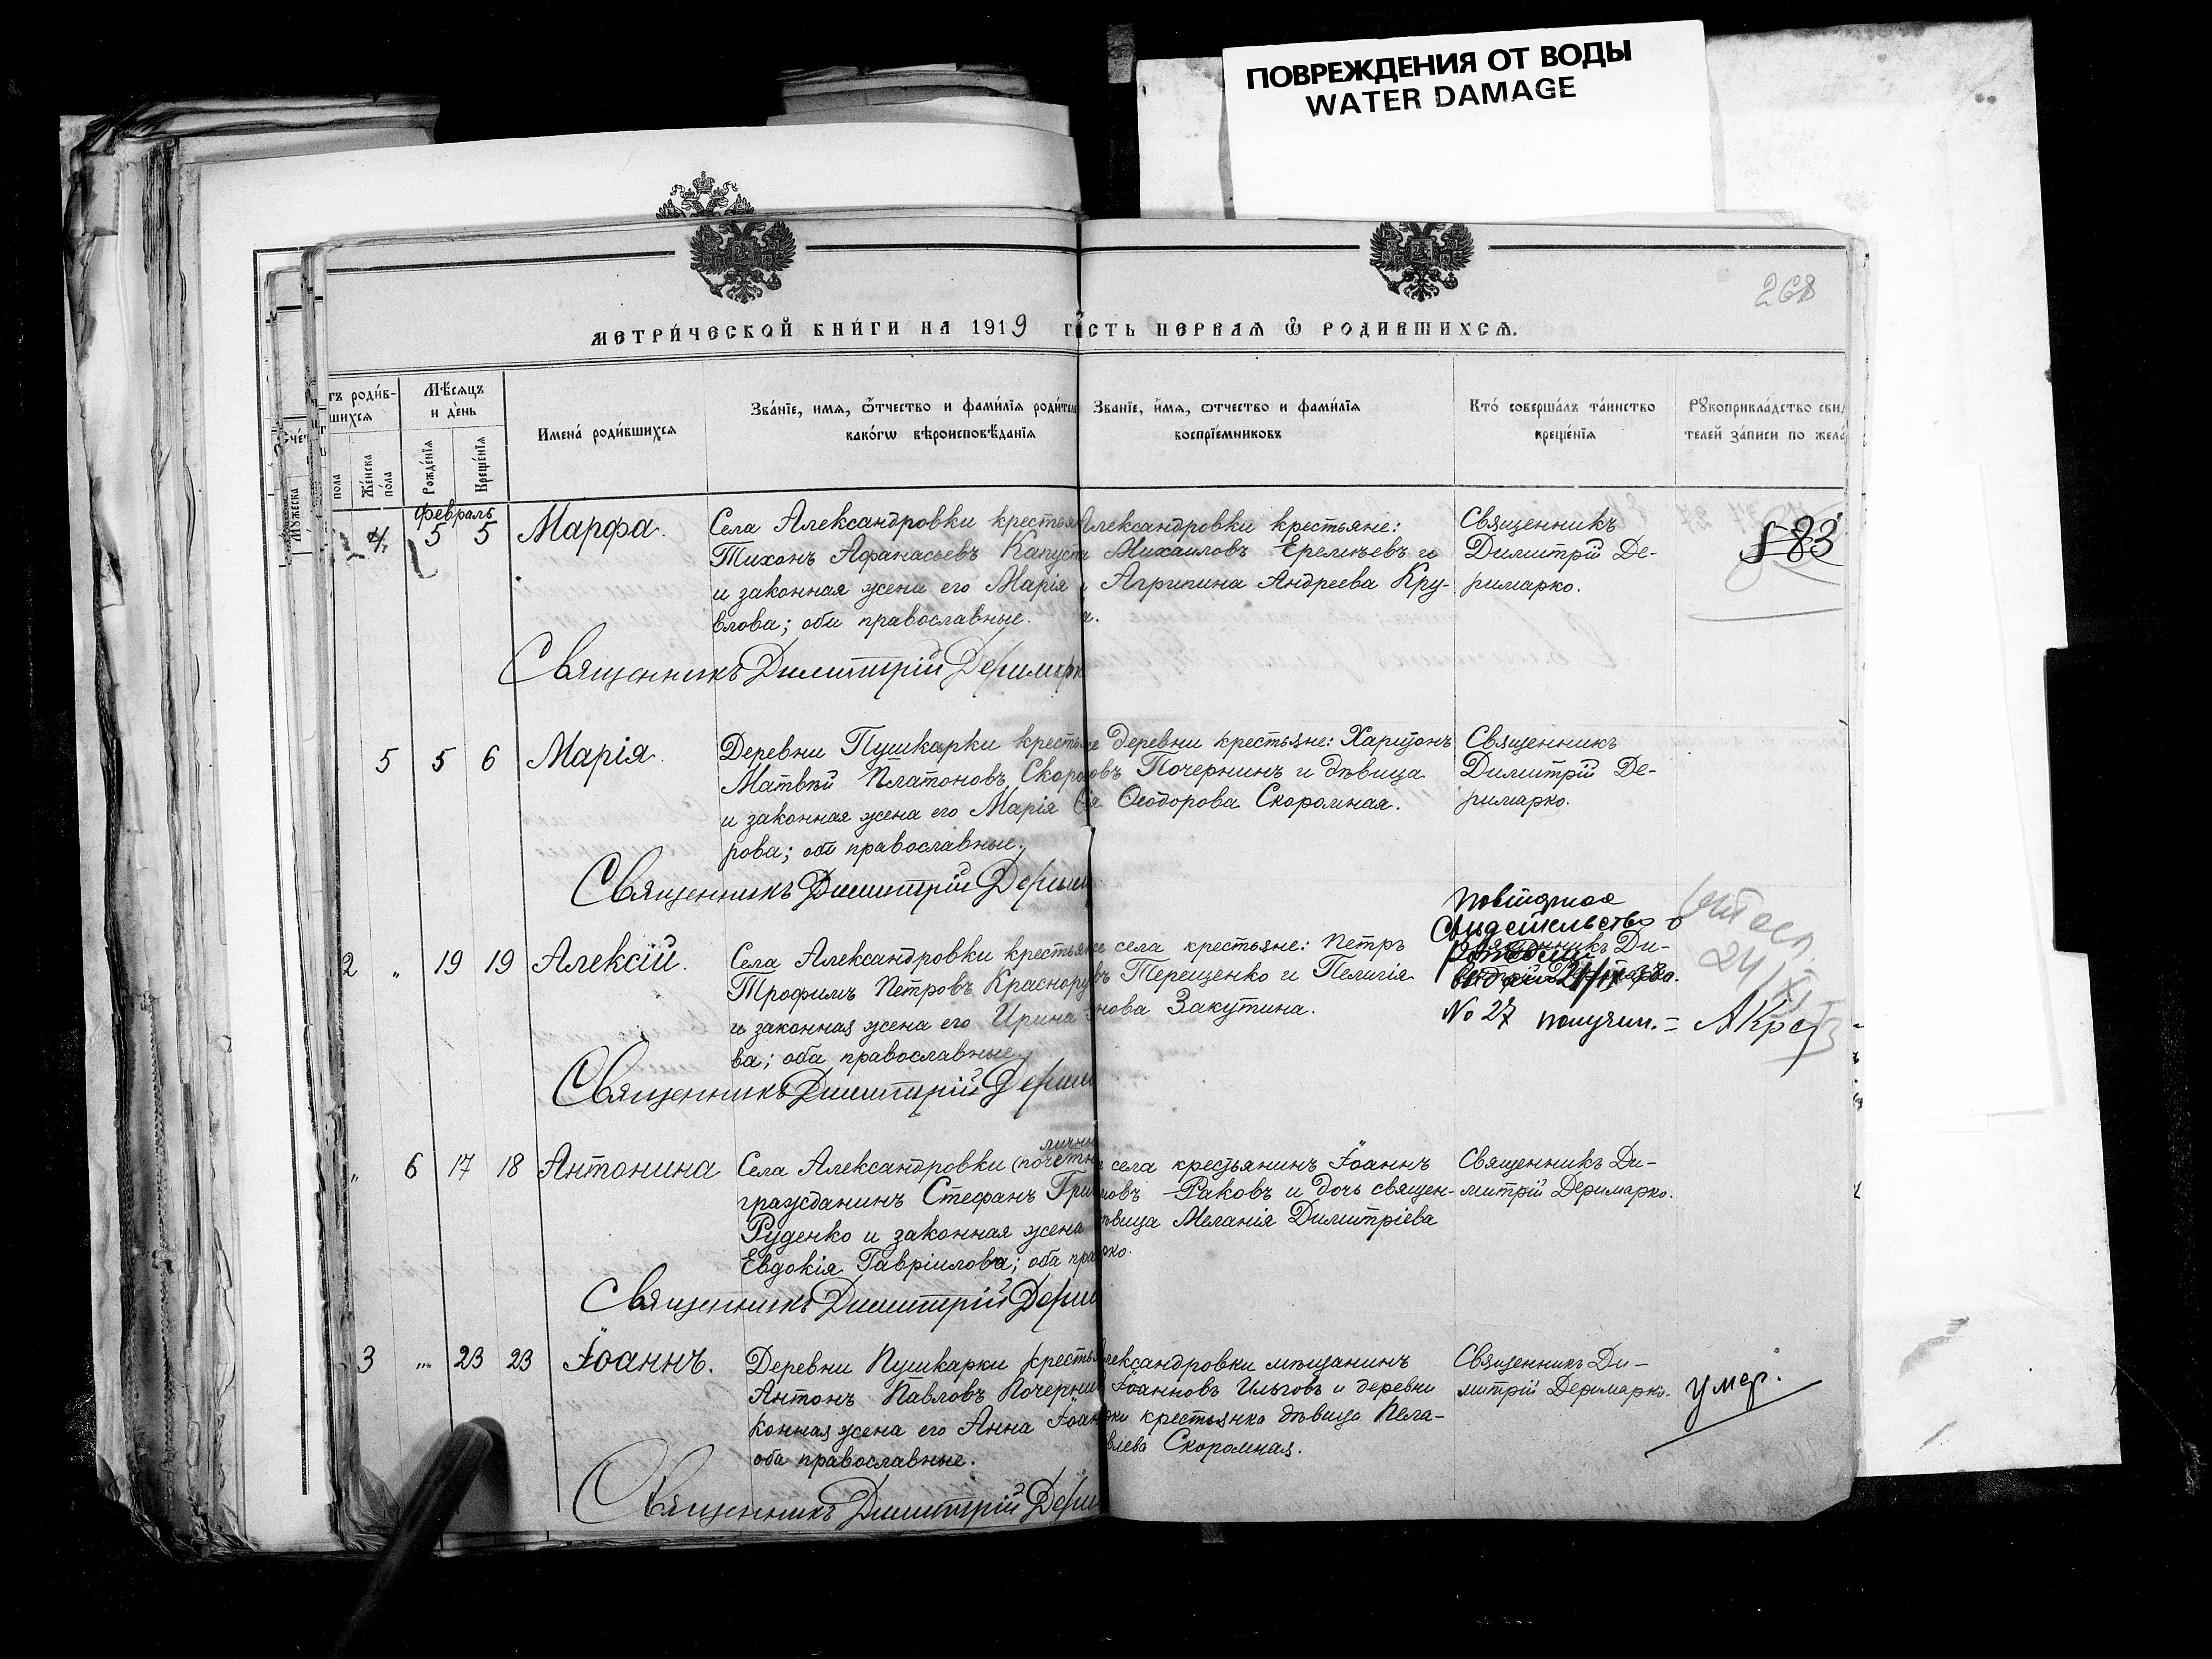 ПОВРЕЖДЕНИЯ ОТ ВОДЫ
WATER DAMAGE
268
МЕТРИ́ЧЕСКОЙ КНИ́ГИ НА 1919 Г
СТЬ ПЕРВАѦ Ѿ РОДИВШИХСѦ.
гъ роди́в-
шихся
пола
Же́нска по́ла
Мѣ́сяцъ
и де́нь
Рожде́нїя
Креще́нїя
Имена́ роди́вшихся
Зва́нїе, имя, ѻ́тчество и фами́лїя родите
како́гѡ вѣроисповѣ́данїя
Зва́нїе, и́мя, ѻтчество и фами́лїя
воспрїе́мниковъ
Кто́ соверша́лъ та́инство
креще́нїя
Рꙋкоприкла́дство сви
телей за́писи по жела
Февраль
4 5 5 Марфа.
Села Александровки крестья
Тихонъ Афанасьевъ Капуст
и законная жена его Марія
влова; оба православные.
Священникъ Димитрій Деримарк
Александровки крестьяне:
Михаиловъ Еремѣевъ и
Агрипина Андреева Кру-
а.
Священникъ
Димитрій Де-
римарко.
5 5 6 Марія.
Деревни Пушкарки кресть
Матвѣй Платоновъ Скоро
и законная жена его Марія
рова; оба православные.
Священникъ Димитрій Дерим
деревни крестьяне: Харитонъ
овъ Почернинъ и дѣвица
Ѳеодорова Скоромная.
Священникъ
Димитрій Де-
римарко.
2 " 19 19 Алексій.
Села Александровки крестья
Трофимъ Петровъ Краснору
и законная жена его Ирина
ва; оба православные.
Священникъ Димитрій Дерим
села крестьяне: Петръ
въ Терещенко и Пелагія
нова Закутина.
Повторное
Свидетельство о
No 27 получил. =
24/XI
" 6 17 18 Антонина
личны
Села Александровки (почетн
гражданинъ Стефанъ Гри
Руденко и законная жена
Евдокія Гавріилова; оба пра
Священникъ Димитрій Дерим
села крестьянинъ Іоаннъ
новъ Раковъ и дочь священ-
ѣвица Меланія Димитріева
рко.
Священникъ Ди-
митрій Деримарко.
3 " 23 23 Іоаннъ.
Деревни Пушкарки кресть
Антонъ Павловъ Почерни
конная жена его Анна Іоан
оба православные.
Священникъ Димитрій Дерим
лександровки мѣщанинъ
Іоанновъ Ильговъ и деревни
рки крестьянка дѣвица Пела-
влева Скоромная.
Священникъ Ди-
митрій Деримарко.
умер.